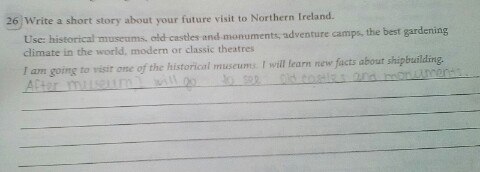 26 Write a short story about your future visit to Northern Ireland.
Use: historical museums, old castles and monuments, adventure camps, the best gardening
climate in the world, modern or classic theatres
I am going to visit one of the historical museums. I will learn new facts about shipbuilding.
After museum I will go to see old castles and monuments.